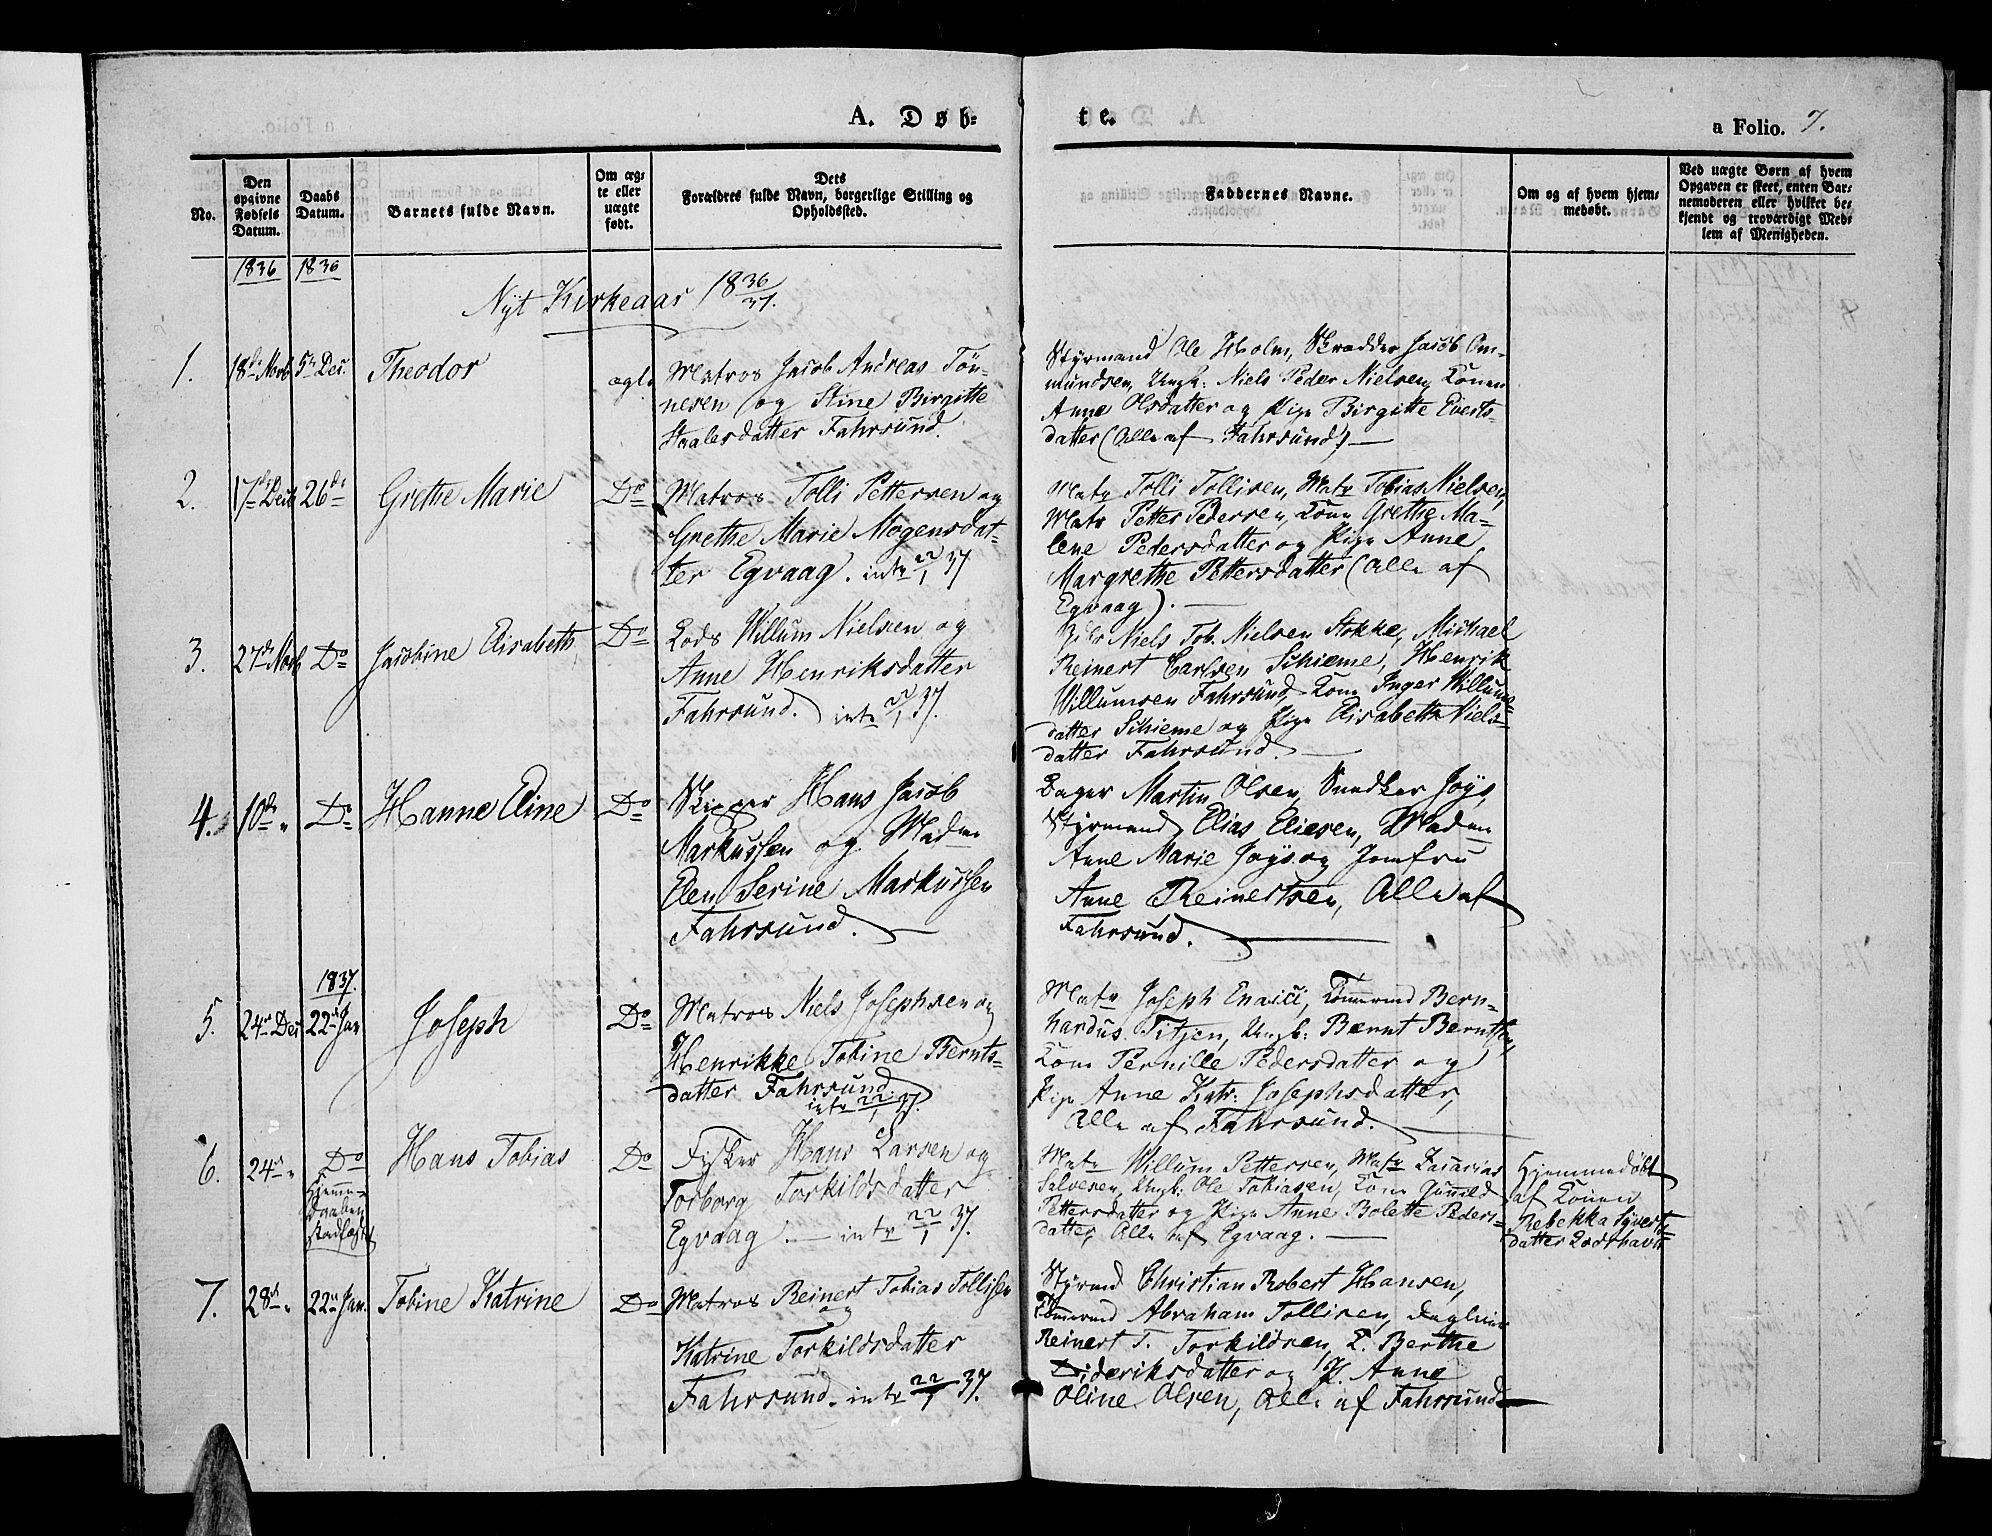 A. Døb-
te.
a Folio. 7.
No.
Den
opgivne
Fødsels
Datum.
Daabs
Datum.
Barnets fulde Navn.
Om æg-
te eller
uægte
født.
Dets
Forældres fulde Navn, borgerlige Stilling og
Opholdssted.
Faddernes Navne.
Om og af hvem hjem-
medøbt.
Ved uægte Børn af hvem
Opgaven er skeet, enten Bar-
nemoderen eller hvilket be-
kjendt og troværdigt Med-
lem af Menigheden.
1836 1836
Nyt Kirkeaar 1836/37.
1. 18de Novb 5te Dec. Theodor ægte
Matros Jacob Andreas Tön-
nesen og Stine Birgitte
Staalesdatter Fahrsund.
Styrmand Ole Holm, Skrædder Jacob Om-
mundsen, Ungk: Niels Peder Nielsen, Konen
Anne Olsdatter og Pige Birgitte Everts-
datter (Alle af Fahrsund) —
2. 17de Decb 26de Grethe Marie Do
Matros Tolli Pettersen og
Grethe Marie Mogensdat-
ter Egvaag. intr 22/1 37
Matr Tolli Tollisen, Matr Tobias Nielsen,
Matr Petter Pedersen, Kone Grethe Ma-
lene Pedersdatter og Pige Anne
Margrethe Pettersdatter (Alle af
Egvaag). —
3. 27de Novb Do Jacobine Elisabeth Do
Lods Willum Nielsen og
Anne Henriksdatter
Fahrsund. intr 22/1 37.
Niels Tob. Nielsen Stokke, Michael
Reinert Carlsen Schieme, Henrik
Willumsen Fahrsund, Kone Inger Willums-
datter Schieme og Pige Elisabeth Niels-
datter Fahrsund. —
4. 10de " Do Hanne Eline Do
Skipper Hans Jacob
Markussen og Madme
Elen Serine Markussen
Fahrsund. —
Bager Martin Olsen, Snedker Joys,
Styrmand Elias Eliesen, Madme
Anne Marie Joys og Jomfru
Anne Reinertsen, Alle af
Fahrsund. —
1837.
5. 24de Dec 22de Jan Joseph Do
Matros Niels Josephsen og
Henrikke Tobine Bernts-
datter Fahrsund.
intr 22/1 37.
Matr Joseph Enaici, Tömmermd Bern-
hardus Titjen, Ungk: Bærnt Berntsen,
Kone Pernille Pedersdatter og
Pige Anne Katr: Josephsdatter,
Alle af Fahrsund. —
6. 24de " Do Hans Tobias Do
Hjemme-
daaben
stadfæstet
Fisker Hans Larsen og
Torborg Torkildsdatter
Egvaag. — intr 22/1 37.
Matr Willum Pettersen, Matr Zacarias
Salvesen, Ungk: Ole Tobiasen, Kone Gunild
Pettersdatter og Pige Anne Bolette Peders-
datter, Alle af Egvaag. —
Hjemmedøbt
af Konen
Rebekka Syverts-
datter Lodshavn
7. 28de " 22de Jan. Tobine Katrine Do
Matros Reinert Tobias Tollisen
og
Katrine Torkildsdatter
Fahrsund. intr 22/1 37.
Styrmd Christian Robert Hansen,
Tömmermd Abraham Tollisen,
Reinert T. Torkildsen, K. Berthe
Dideriksdatter og P. Anne
Oline Olsen, Alle af Fahrsund. —